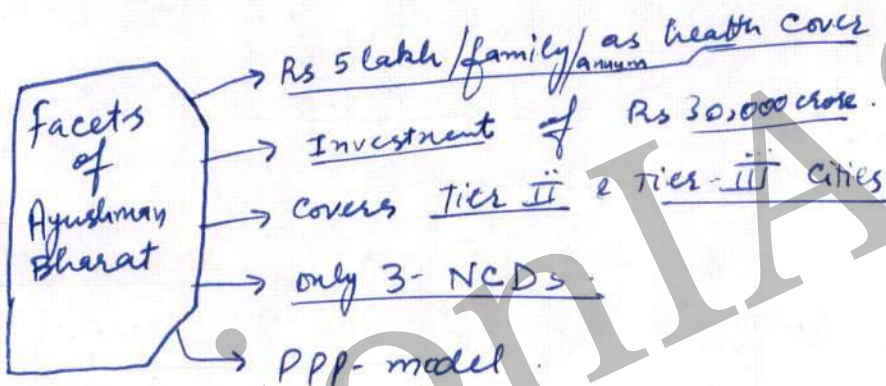 Facets
of
Ayushman
Bharat
→ Rs 5 lakh/family/annum as health cover
→ Investment of Rs 30,000 crore.
→ Covers Tier II & Tier-III Cities
→ only 3- NCDs.
→ PPP-model.
onIAS